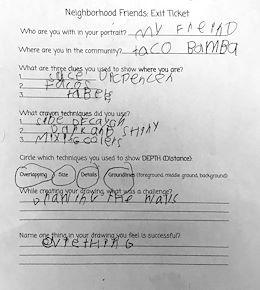 Neighborhood Friends: Exit Ticket
Who are you with in your portrait? MY FREIND
Where are you in the community? taco BamBa
What are three clues you used to show where you are?
1.
2. tacos
3. tABels
What crayon techniques did you use?
1. SIDE
2. DARK AND SHINY
3. MIXING colers
Circle which techniques you used to show DEPTH (Distance):
Overlapping Size Details Groundlines (foreground, middle ground, background)
While creating your drawing, what was a challenge?
the walls
Name one thing in your drawing you feel is successful?